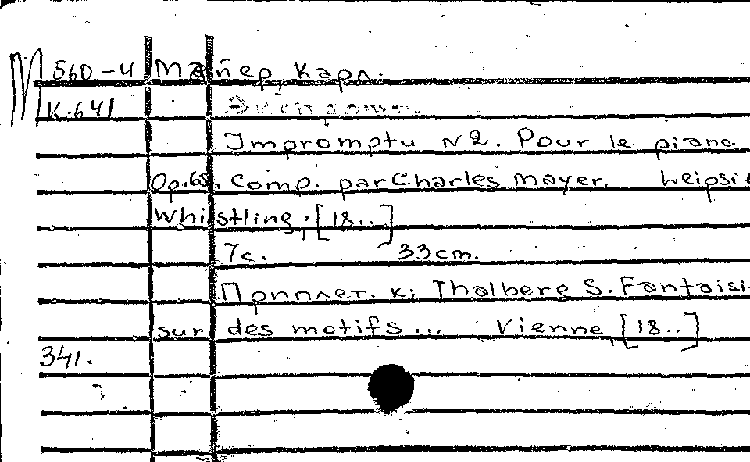 М 560-4 Майер, Карл.
К.641 Экспромт.
Impromptu N2. Pour le piano
Op.68. Comp. par Charles Mayer. Leipsi
Whistling, [18..]
7с. 33 cm.
Приплет. к: Thalberg S. Fantaisi
sur des motifs... Vienne, [18..]
341.